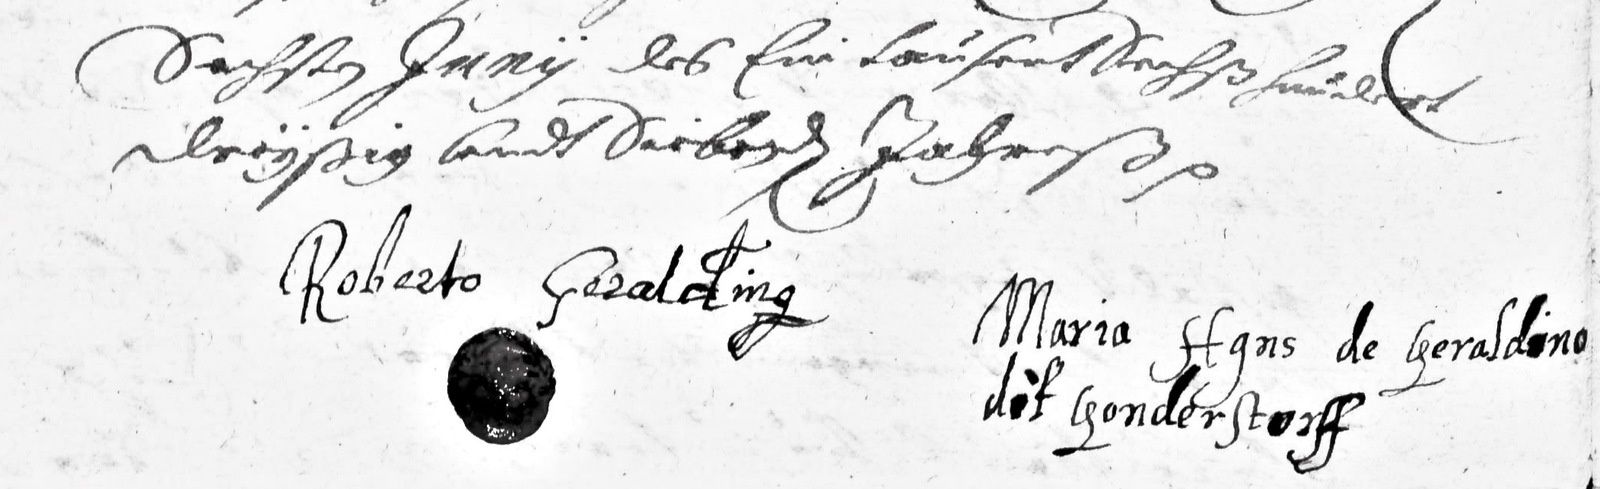 Sechsten Junij des Ein tausent Sechß hundert
dreÿßig undt Siebend Jahreß
Roberto Geralding
Maria Agns de Geraldino
dit Gonderstorff